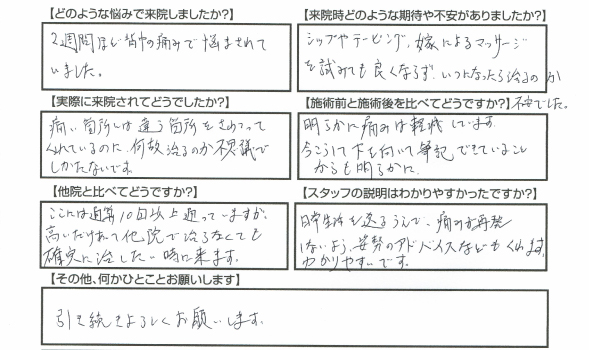 【どのような悩みで来院しましたか?】
2週間ほど背中の痛みで悩まされて
いました。
【来院時どのような期待や不安がありましたか?】
シップやテーピング、嫁によるマッサージ
を試みても良くならず、いつになったら治るのか
不安でした。
【実際に来院されてどうでしたか?】
痛い箇所とは違う箇所をさわって
くれているのに、何故治るのか不思議で
しかたないです。
【施術前と施術後を比べてどうですか?】
明らかに痛みは軽減しています。
今こうして下を向いて筆記できていること
からも明らかに。
【他院と比べてどうですか?】
ここには通算10回以上通っていますが、
高いだけあって他院で治らなくても
確実に治したい時に来ます。
【スタッフの説明はわかりやすかったですか?】
日常生活を送るうえで、痛みが再発
しないよう、姿勢のアドバイスなどもくれます。
わかりやすいです。
【その他、何かひとことお願いします】
引き続きよろしくお願いします。